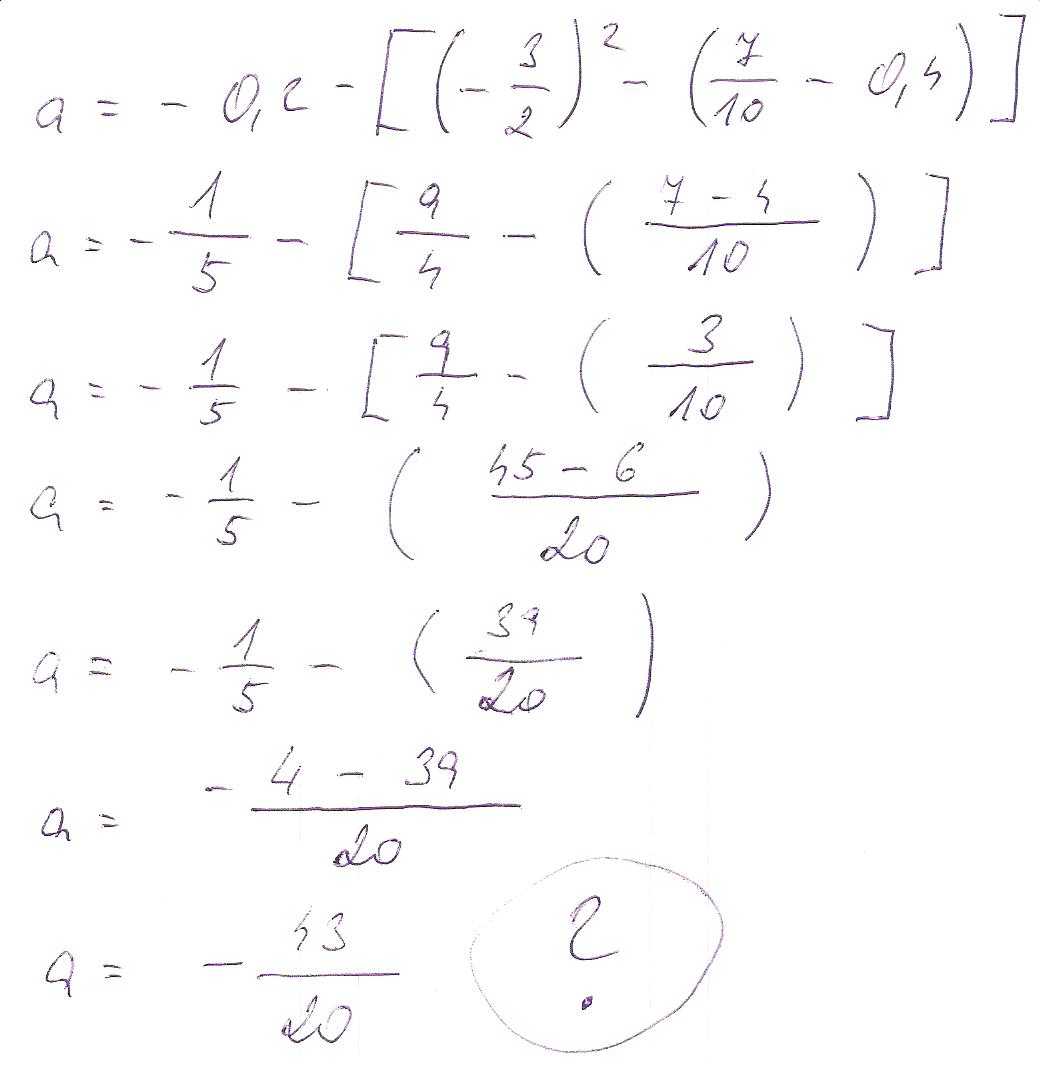 a = - 0,2 - [(- 3/2)² - (7/10 - 0,4)]
a = - 1/5 - [9/4 - (7 - 4/10)]
a = - 1/5 - [9/4 - (3/10)]
a = - 1/5 - (45 - 6/20)
a = - 1/5 - (39/20)
a = - 4 - 39/20
a = - 43/20 ?